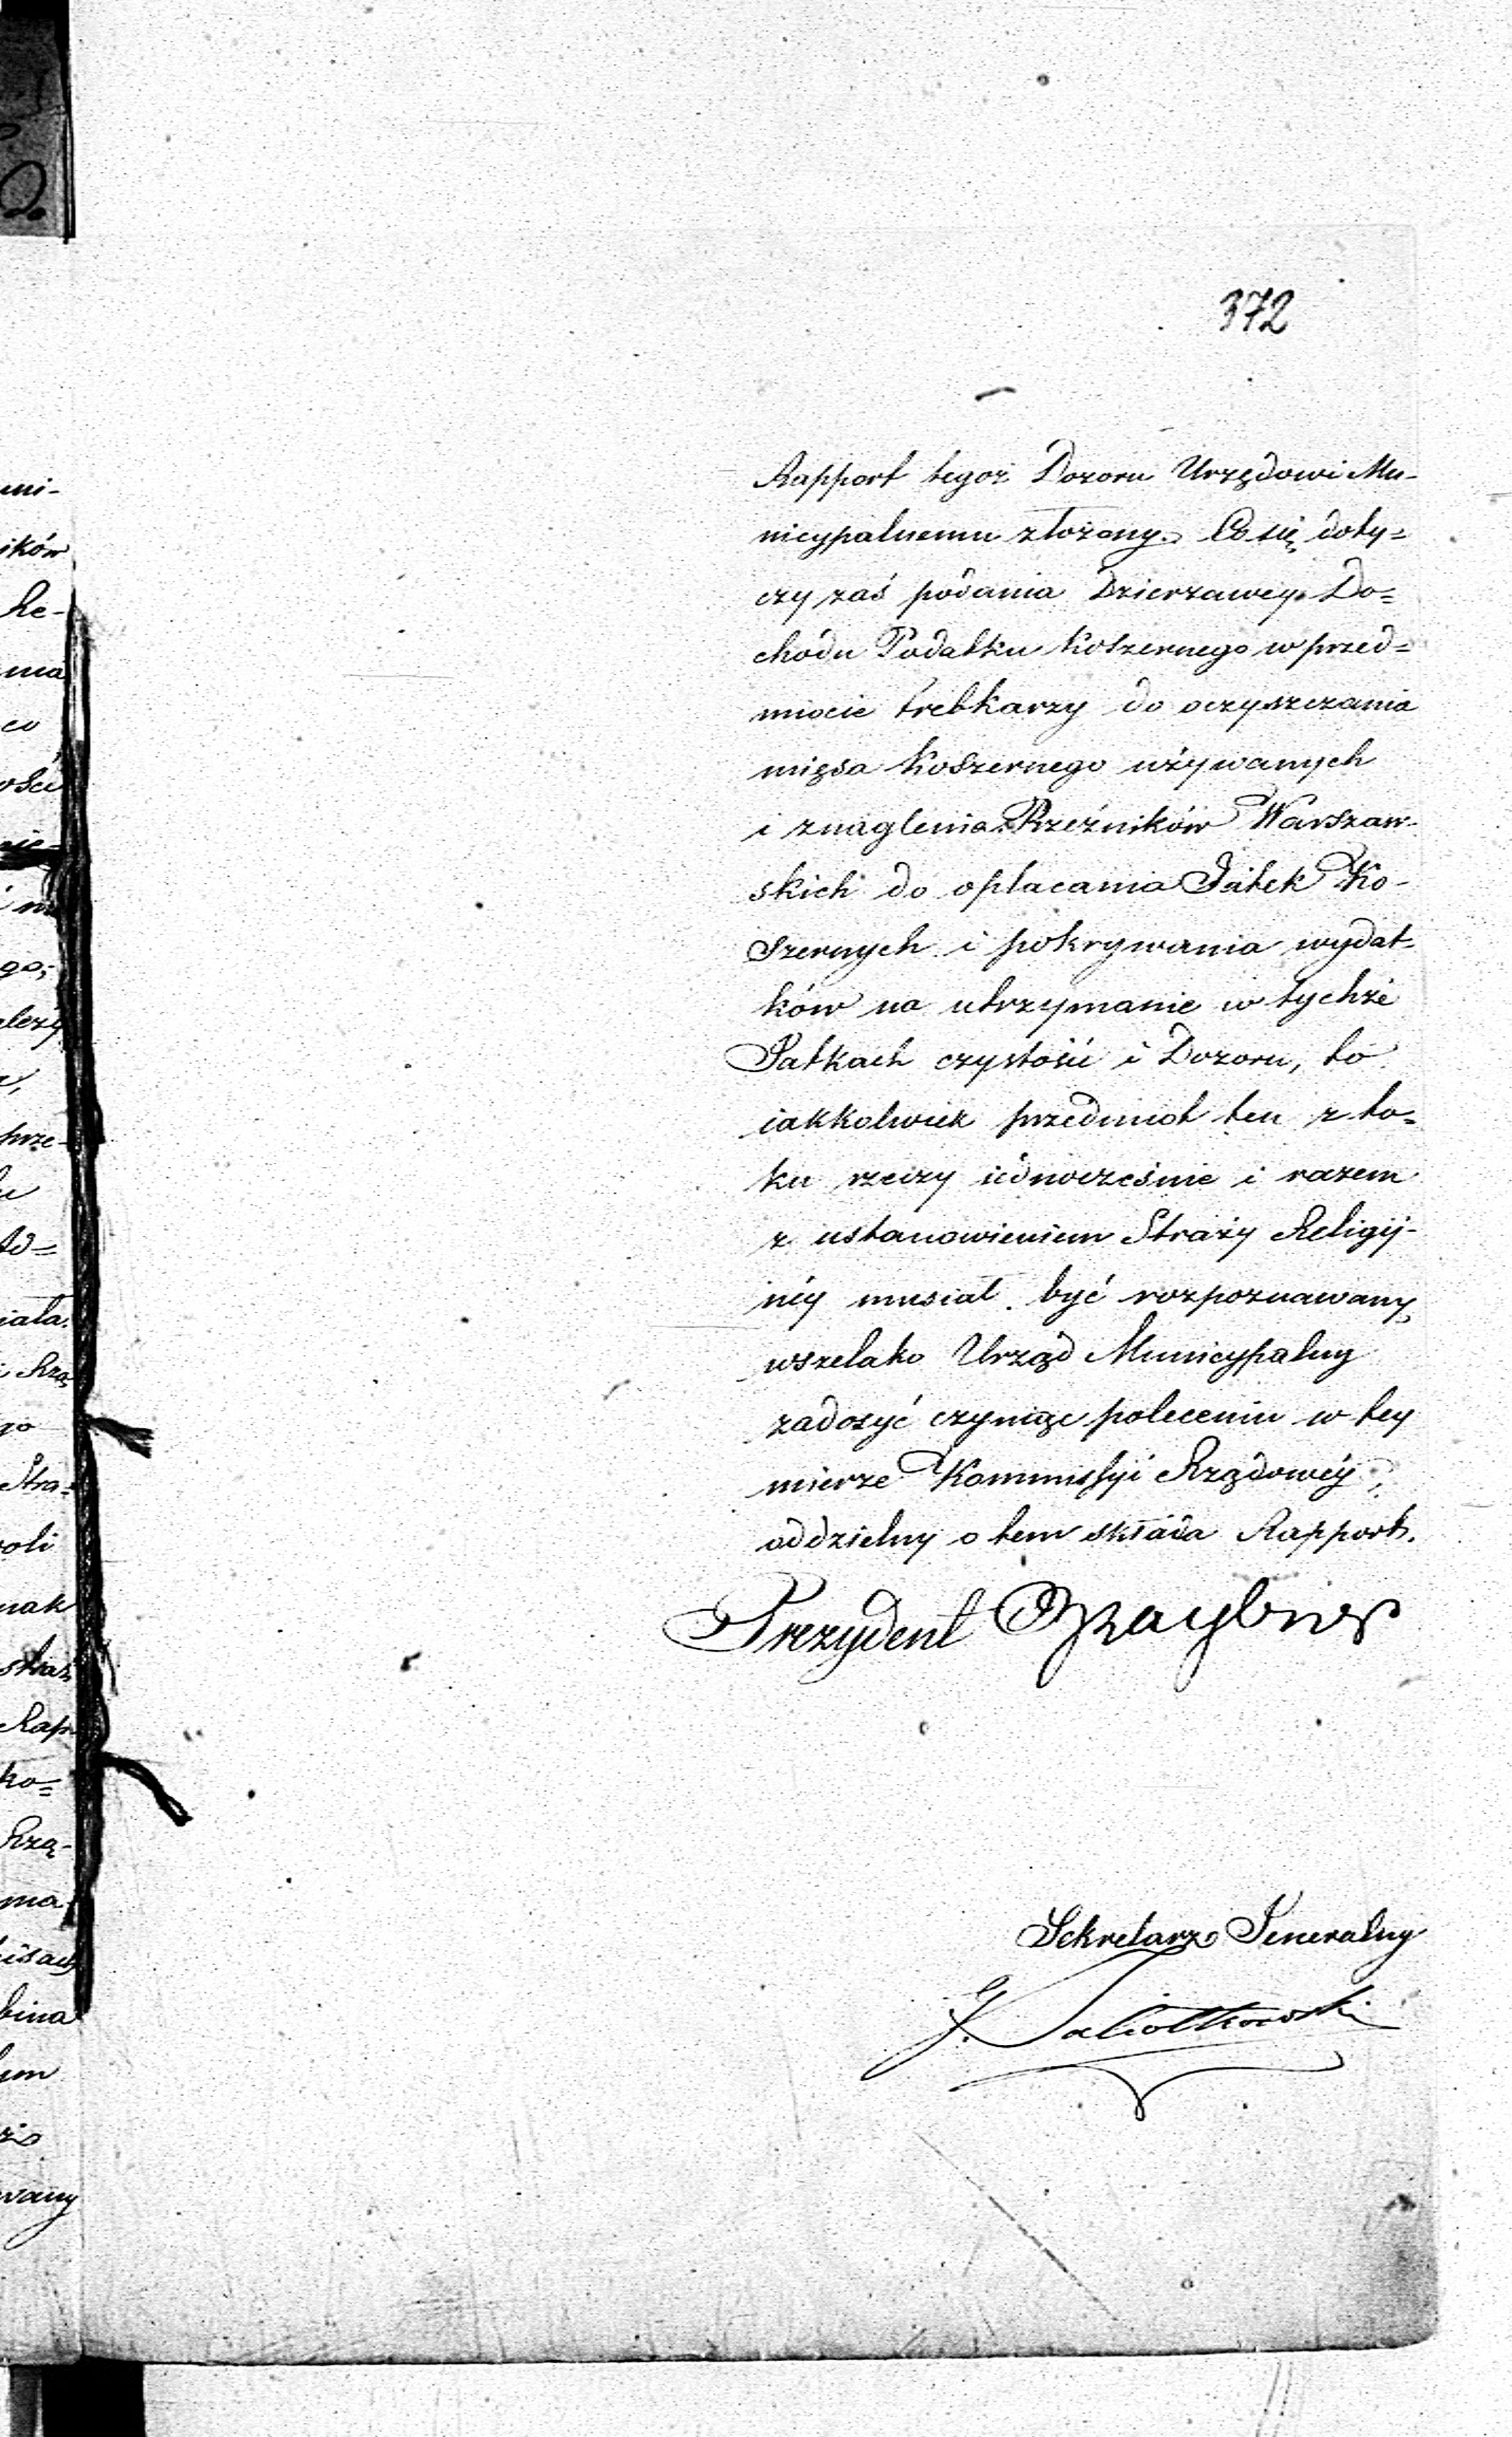 372
Rapport tegoż Dozoru Urzędowi Mu-
nicypalnemu złożony. Co się doty=
czy zaś podania Dzierzawcy Do=
chodu Podatku koszernego w przed=
miocie trebkarzy do oczyszczania
mięsa koszernego używanych
i znaglenia Rzeźników Warszaw-
skich do opłacania Jatek Ko-
szernych i pokrywania wydat-
ków na utrzymanie w tychże
Jatkach czystości i Dozoru, to
iakkolwiek przedmiot ten z to=
ku rzeczy iednocześnie i razem
z ustanowieniem Straży Religij-
néy musiał być rozpoznawany,
wszelako Urząd Municypalny
zadosyć czyniąc poleceniu w tey
mierze Kommissyi Rządowéy,
oddzielny o tem składa Rapport.
Prezydent
Sekretarz Jeneralny
J.
uni-
ików
Re-
ma
co
ości
go,
prze-
iała.
Rzą
go
Stra-
oli
nak
Rap
ko=
Rzą-
ma
bina
wany